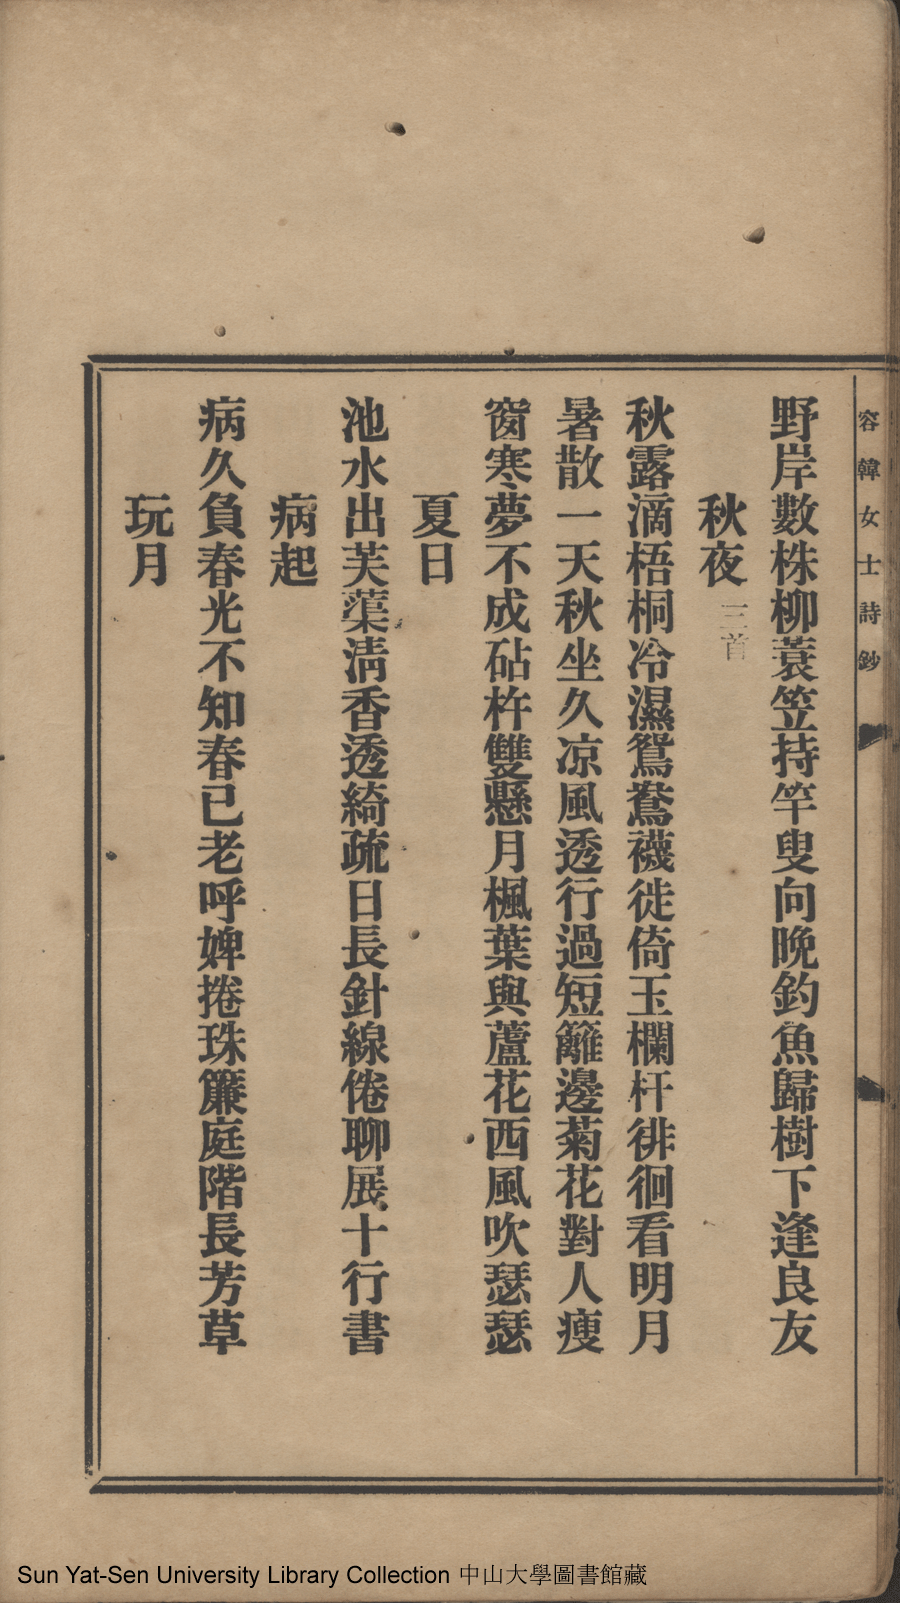 容韓女士詩鈔
野岸數株柳蓑笠持竿叟向晚釣魚歸樹下逢良友
秋夜 三首
秋露滴梧桐冷濕鴛鴦襪徙倚玉欄杆徘徊看明月
暑散一天秋坐久凉風透行過短籬邊菊花對人瘦
窗寒夢不成砧杵雙懸月楓葉與蘆花西風吹瑟瑟
夏日
池水出芙蕖清香透綺疏日長針線倦聊展十行書
病起
病久負春光不知春已老呼婢捲珠簾庭階長芳草
玩月
Sun Yat-Sen University Library Collection 中山大學圖書館藏